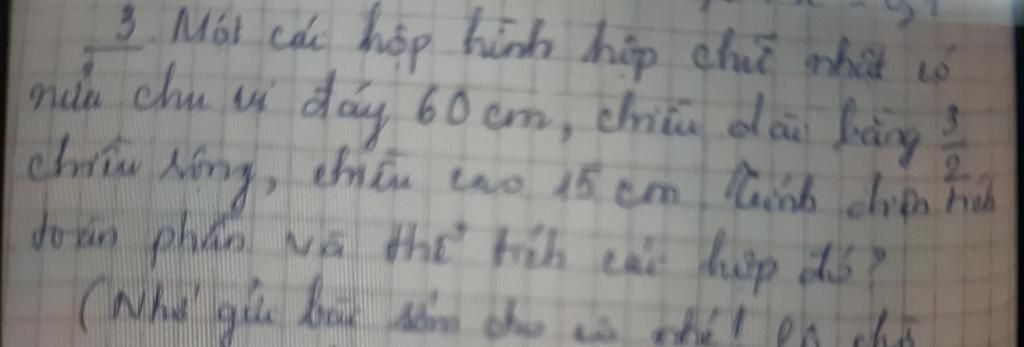 3. Một cái hộp hình hộp chữ nhật có
nửa chu vi đáy 60 cm, chiều dài bằng 3/2
chiều rộng, chiều cao 15 cm Tính diện tích
toàn phần và thể tích cái hộp đó?
(Nhớ gửi bài sớm cho cô nhé!